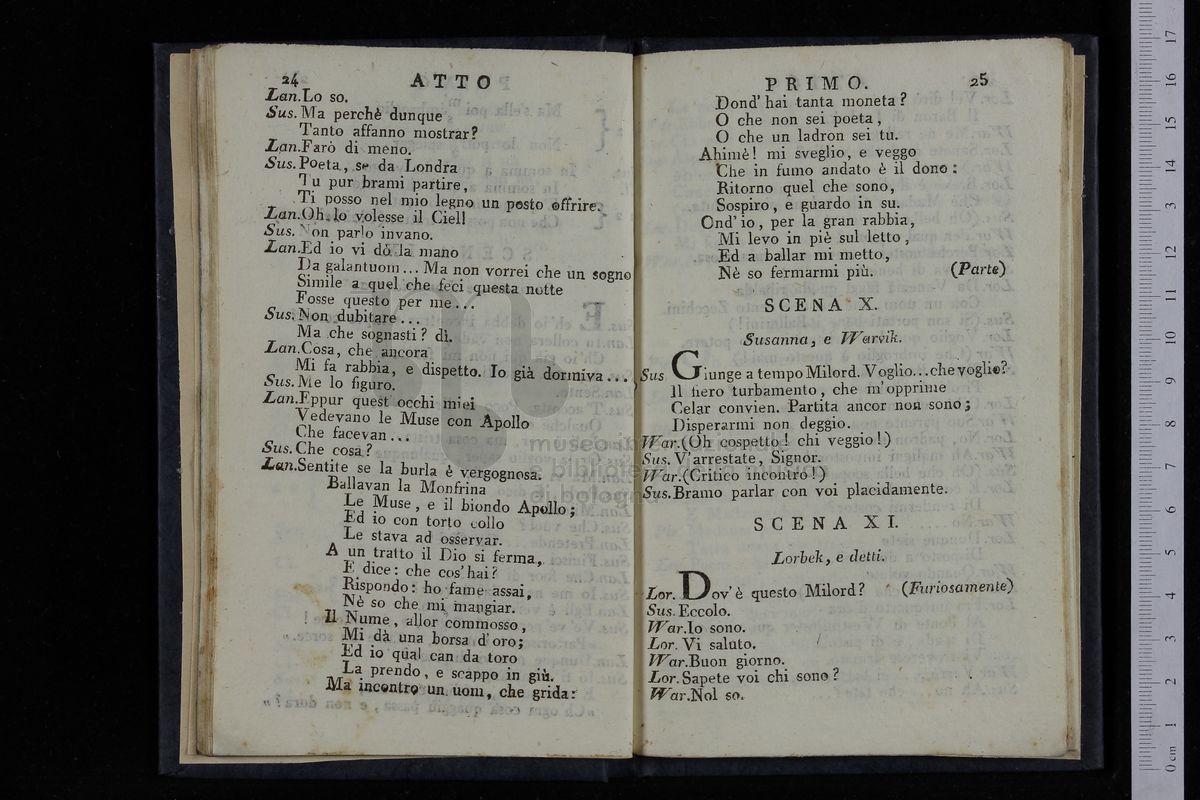 24 ATTO
Lan. Lo so.
Sus. Ma perchè dunque
Tanto affanno mostrar?
Lan. Farò di meno.
Sus. Poeta, se da Londra
Tu pur brami partire,
Ti posso nel mio legno un posto offrire.
Lan. Oh, lo volesse il Ciel!
Sus. Non parlo invano.
Lan. Ed io vi dò la mano
Da galantuom... Ma non vorrei che un sogno
Simile a quel che feci questa notte
Fosse questo per me...
Sus. Non dubitare...
Ma che sognasti? dì.
Lan. Cosa, che ancora
Mi fa rabbia, e dispetto. Io già dormiva...
Sus. Me lo figuro.
Lan. Eppur quest' occhi miei
Vedevano le Muse con Apollo
Che facevan...
Sus. Che cosa?
Lan. Sentite se la burla è vergognosa.
Ballavan la Monfrina
Le Muse, e il biondo Apollo;
Ed io con torto collo
Le stava ad osservar.
A un tratto il Dio si ferma,
E dice: che cos' hai?
Rispondo: ho fame assai,
Nè so che mi mangiar.
Il Nume, allor commosso,
Mi dà una borsa d'oro;
Ed io qual can da toro
La prendo, e scappo in giù.
Ma incontro un uom, che grida:
PRIMO. 25
Dond' hai tanta moneta?
O che non sei poeta,
O che un ladron sei tu.
Ahimè! mi sveglio, e veggo
Che in fumo andato è il dono:
Ritorno quel che sono,
Sospiro, e guardo in su.
Ond' io, per la gran rabbia,
Mi levo in piè sul letto,
Ed a ballar mi metto,
Nè so fermarmi più. (Parte)
SCENA X.
Susanna, e Warvik.
Sus Giunge a tempo Milord. Voglio... che voglio?
Il fiero turbamento, che m'opprime
Celar convien. Partita ancor non sono;
Disperarmi non deggio.
War. (Oh cospetto! chi veggio!)
Sus. V'arrestate, Signor.
War. (Critico incontro!)
Sus. Bramo parlar con voi placidamente.
SCENA XI.
Lorbek, e detti.
Lor. Dov' è questo Milord? (Furiosamente)
Sus. Eccolo.
War. Io sono.
Lor. Vi saluto.
War. Buon giorno.
Lor. Sapete voi chi sono?
War. Nol so.